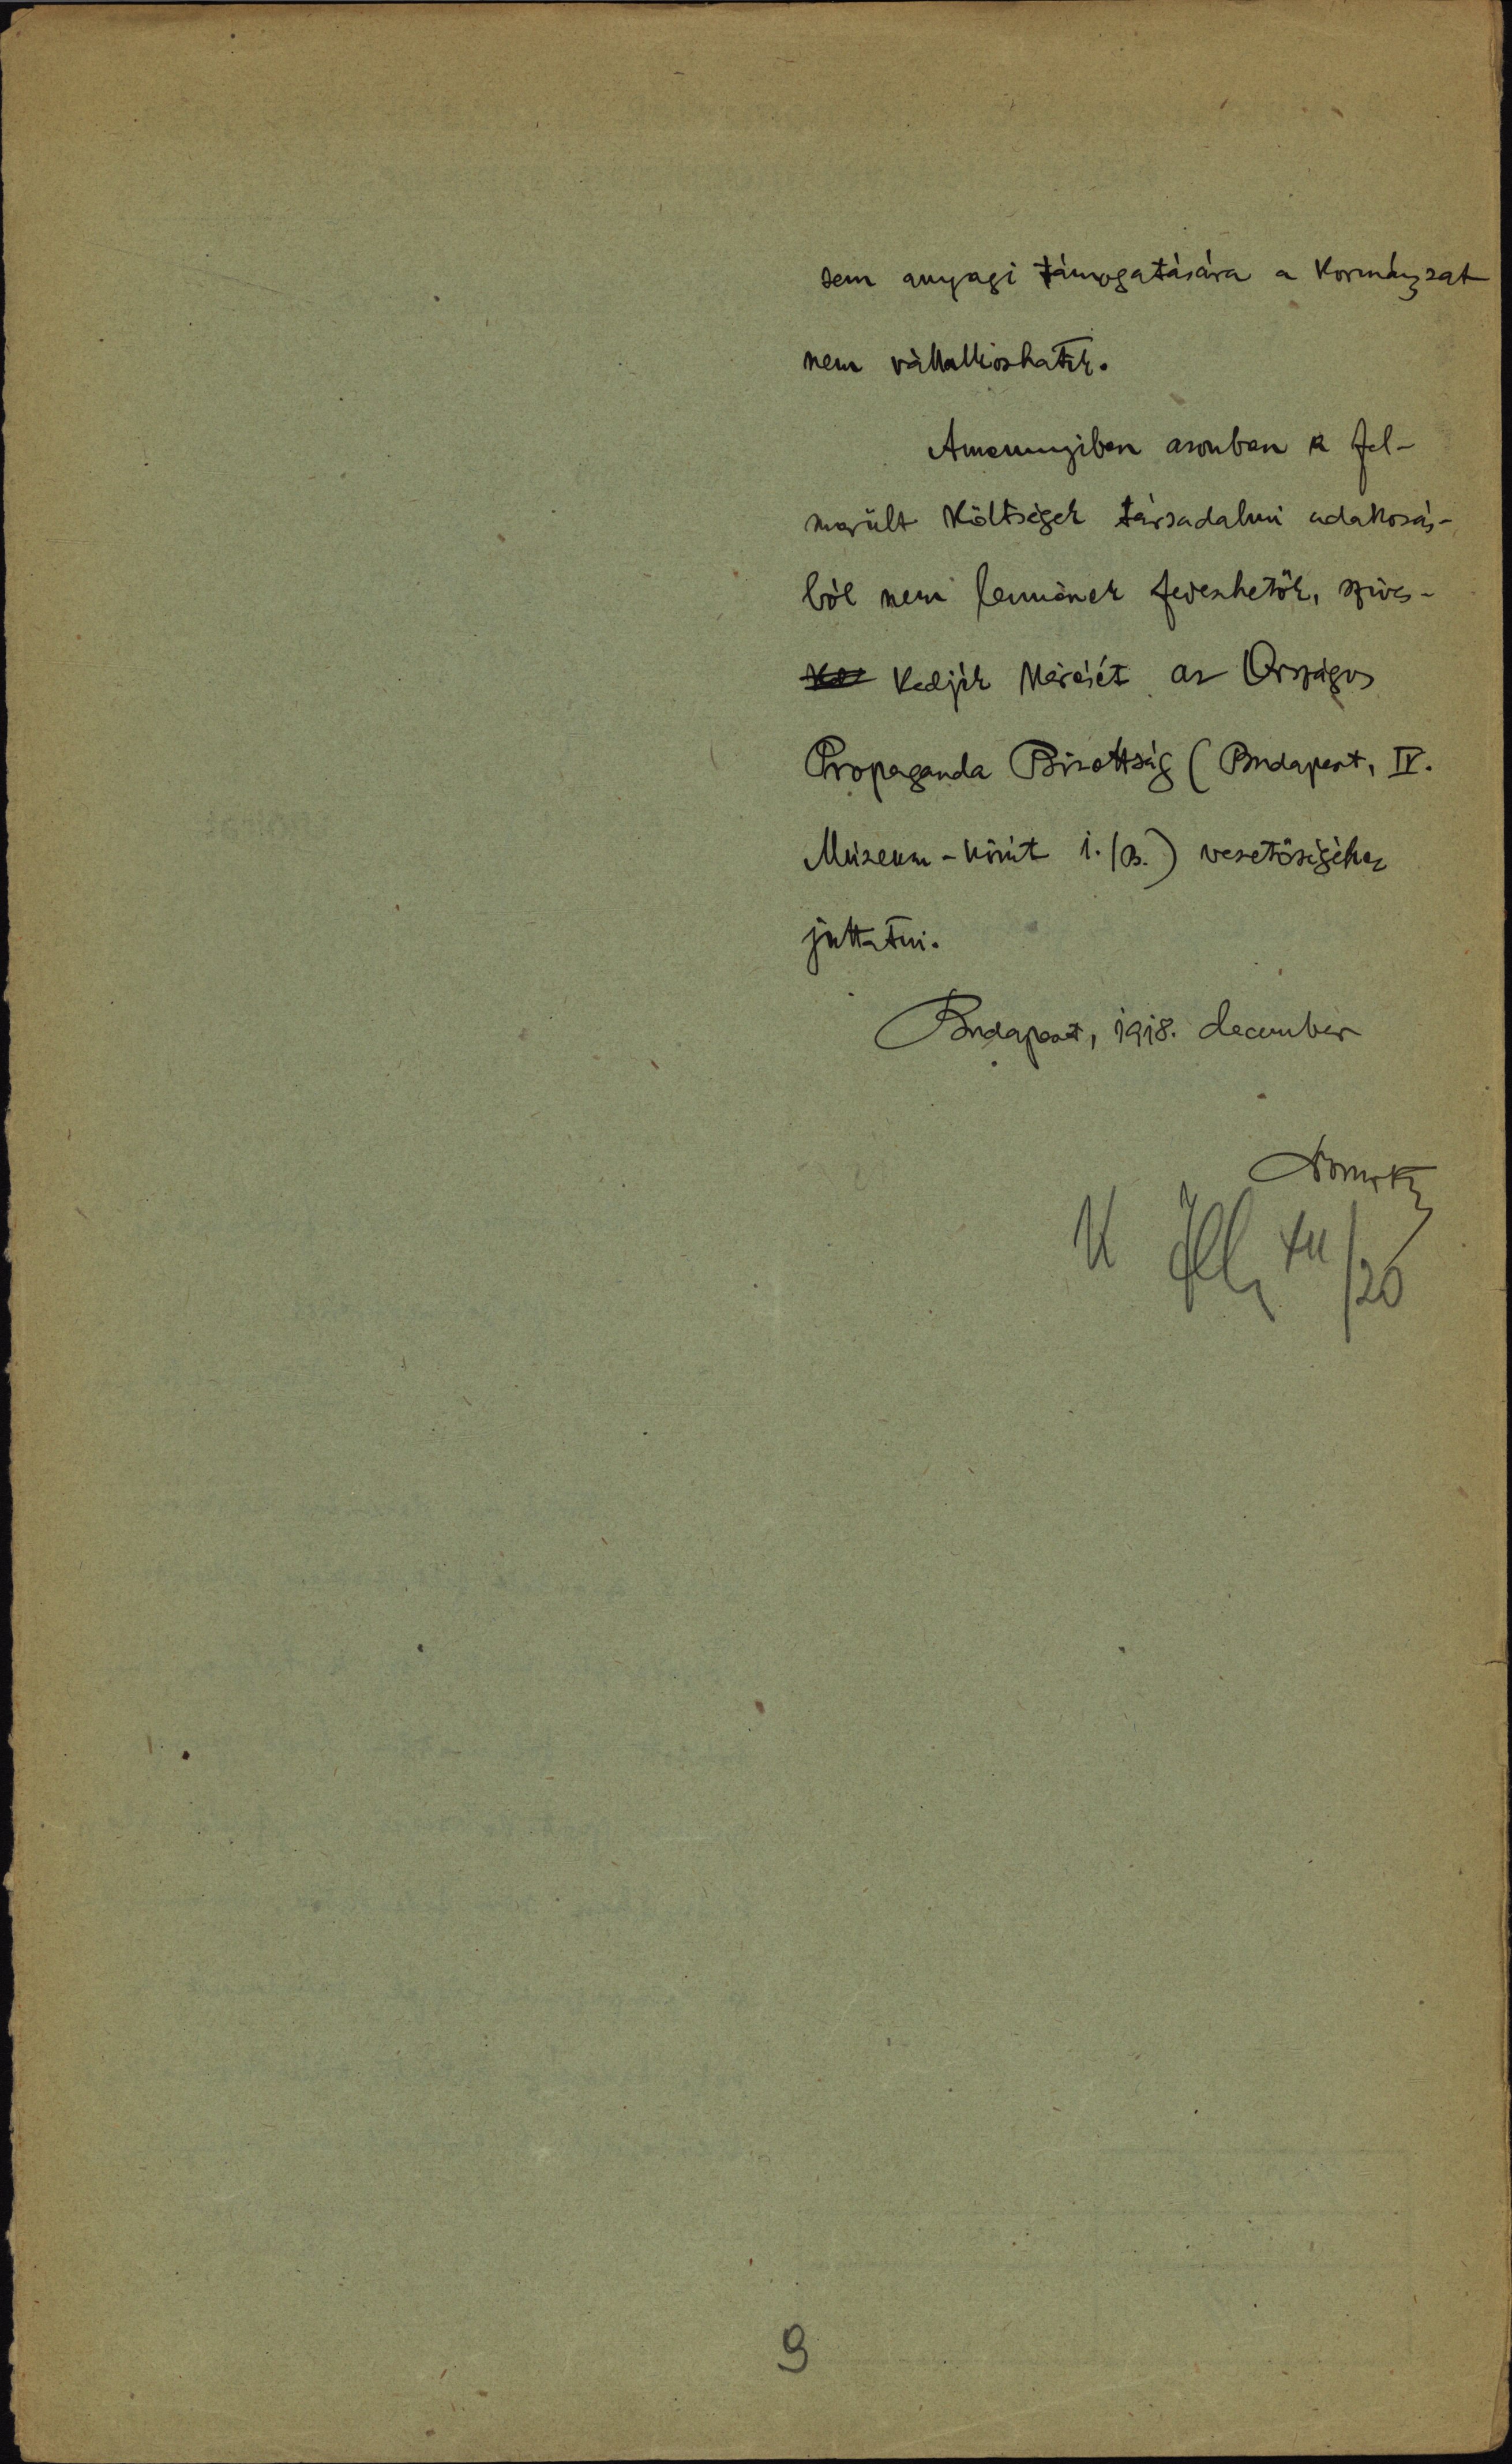 sem anyagi támogatására a kormányzat
nem vállalkozhatik.
Amennyiben azonban a fel-
merült költségek társadalmi adakozás-
ból nem lennének fedezhetők, szives-
kedjék kérését az Országos
Propaganda Bizottság (Budapest, IV.
Múzeum-körút 1./B.) vezetőségéhez
juttatni.
Budapest, 1918. december
K XII/20
9